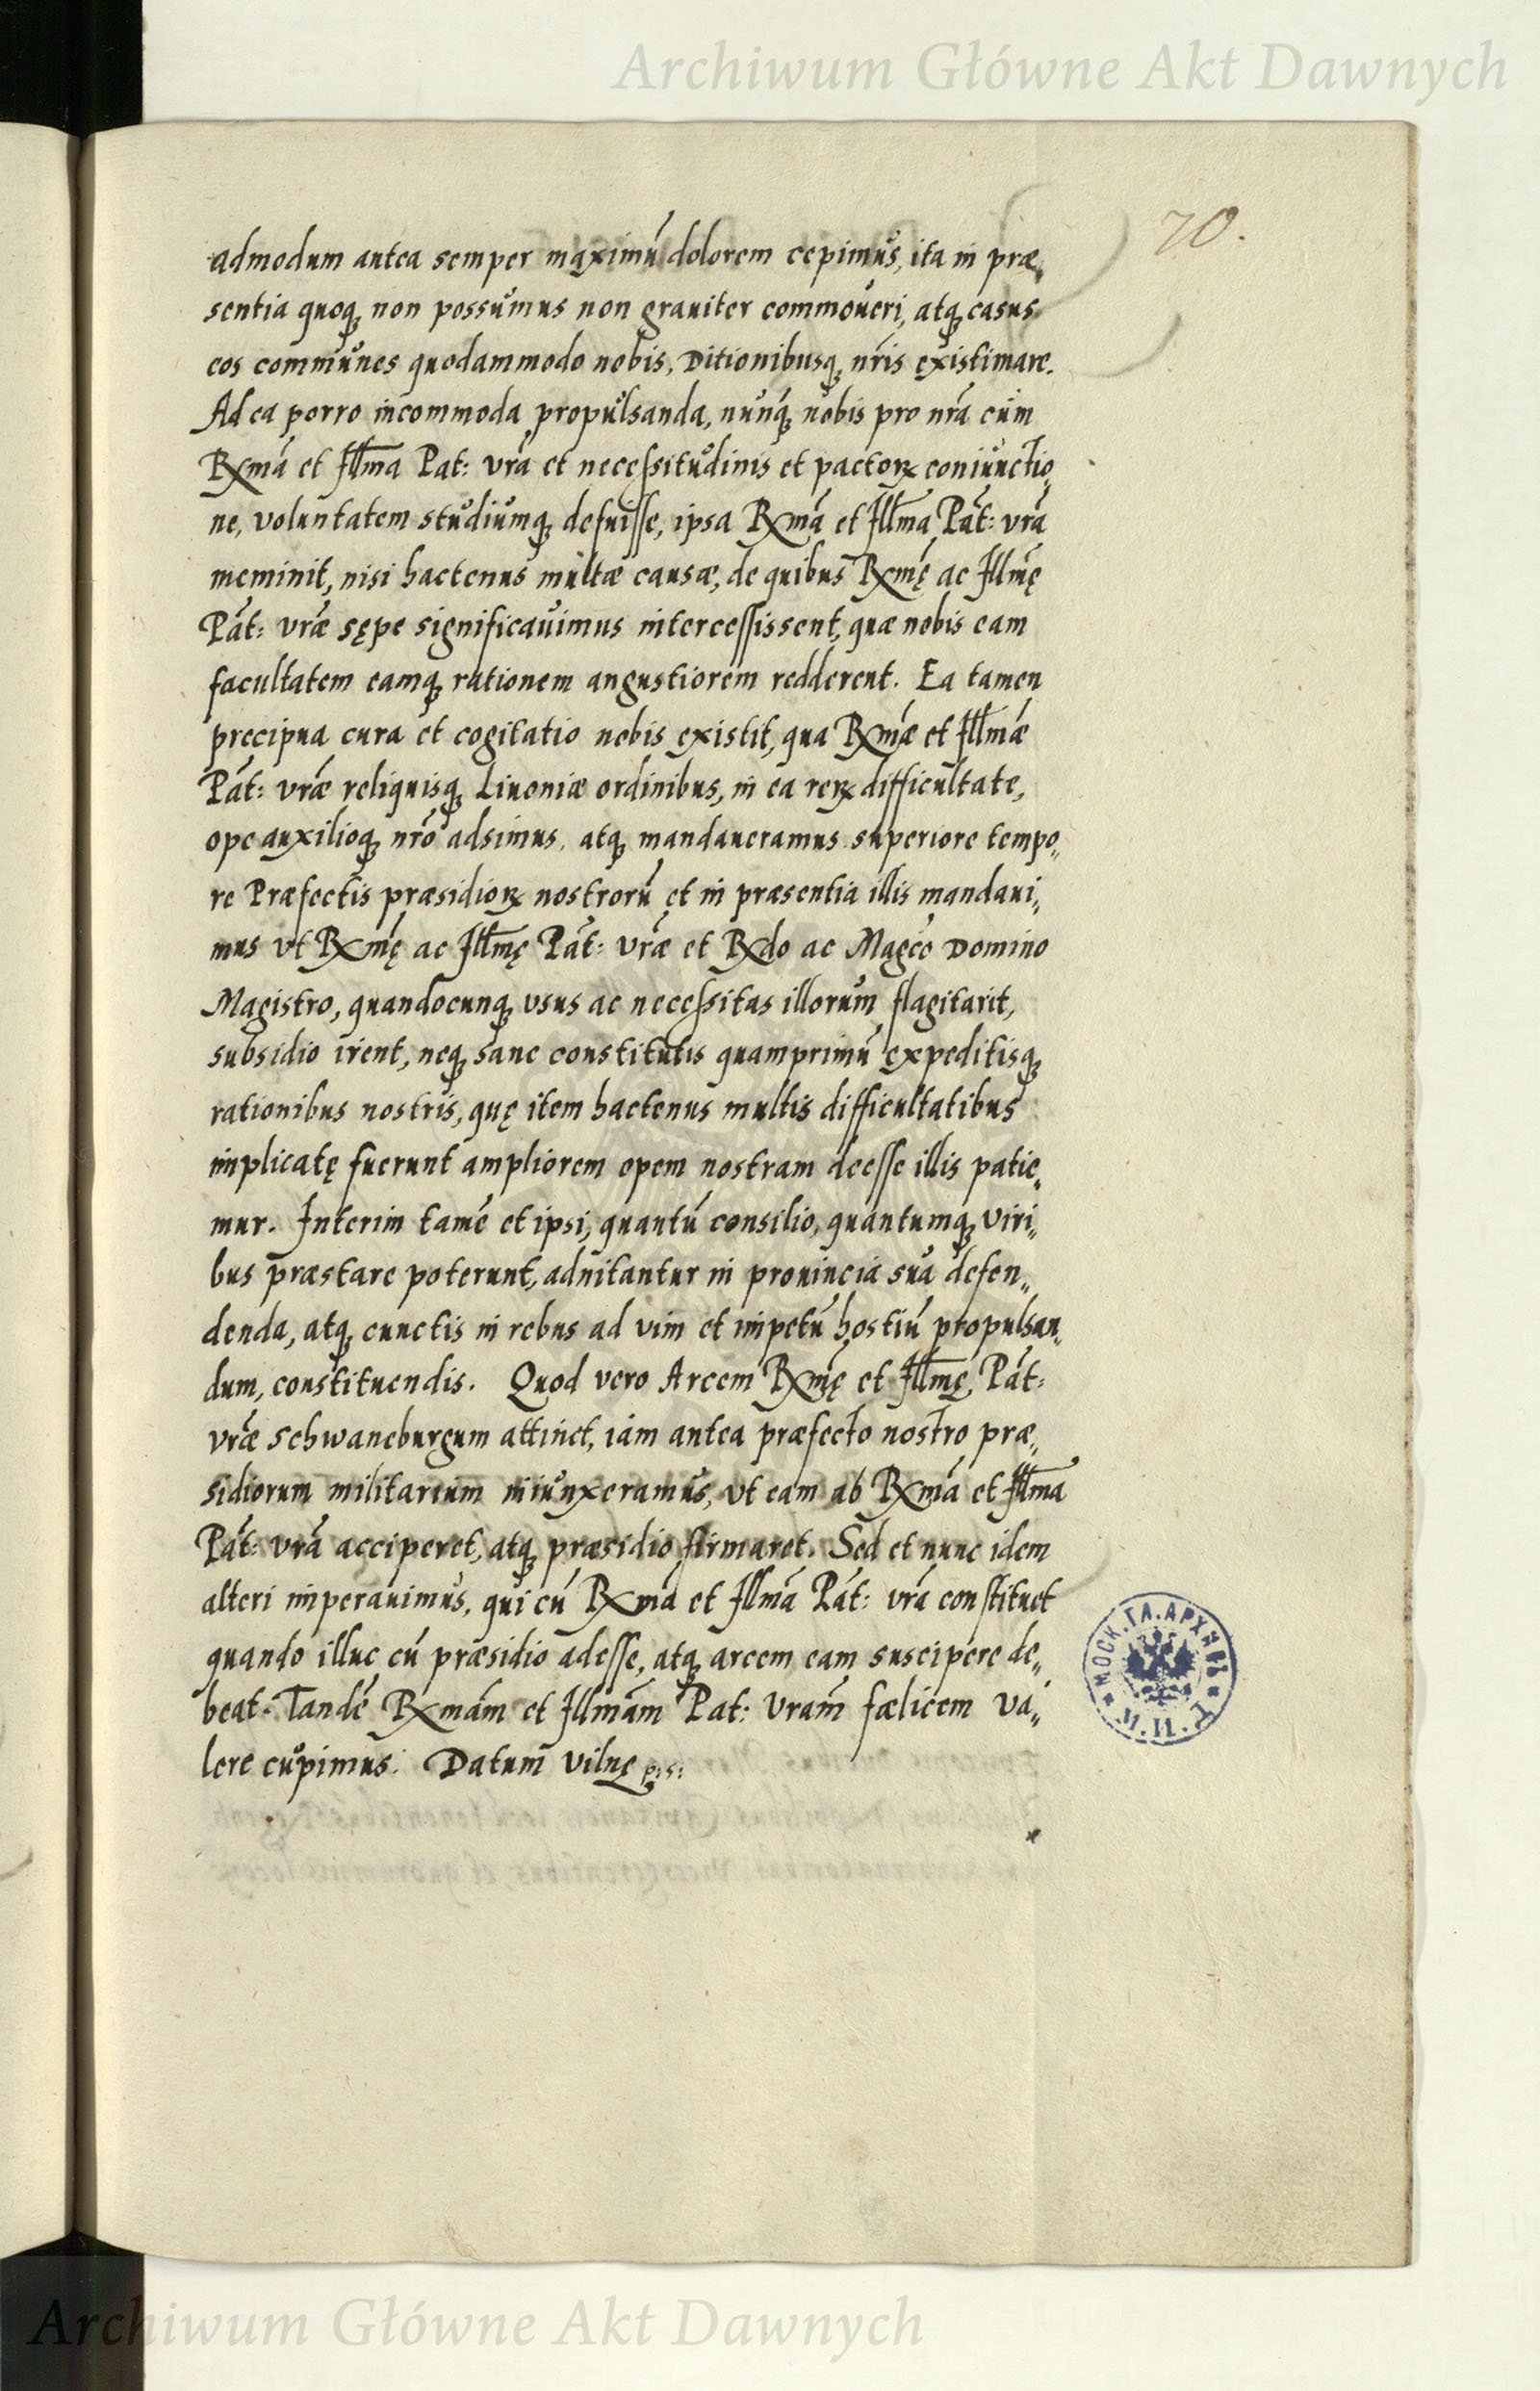 Archiwum Główne Akt Dawnych
70.
admodum antea semper maximū dolorem cepimus, ita in præ„
sentia quoq; non possumus non grauiter commoueri, atq; casus
eos communes quodammodo nobis, Ditionibusq; nr̃is existimare.
Ad ea porro incommoda propulsanda, nunq́; nobis pro nr̃a cum
Rxmã et Illma Pat: vr̃a et necessitudinis et pactoꝝ coniunctio„
ne, voluntatem studiumq; defuisse, ipsa Rxmã et Illma Pãt: vr̃a
meminit, nisi hactenus multæ causæ, de quibus Rxmę̃ ac Illmę̃
Pãt: vr̃æ sępe significauimus intercessissent, quæ nobis eam
facultatem eamq; rationem angustiorem redderent. Ea tamen
precipua cura et cogitatio nobis existit, qua Rxmæ̃ et Illmæ̃
Pãt: vr̃æ reliquisq; Liuoniæ ordinibus, in ea reꝝ difficultate,
ope auxilioq; nr̃o adsimus, atq; mandaueramus superiore tempo„
re Præfectis præsidioꝝ nostrorū et in præsentia illis mandaui„
mus vt Rxmę̃ ac Illmę Pãt: vr̃æ et Rxdo ac Magc̃o Domino
Magistro, quandocunq; vsus ac necessitas illorum flagitarit,
subsidio irent, neq; sane constitutis quamprimū expeditisq;
rationibus nostris, quę item hactenus multis difficultatibus
implicatę fuerunt ampliorem opem nostram deesse illis patie„
mur. Interim tamē et ipsi, quantū consilio, quantumq; viri„
bus præstare poterunt, adnitantur in prouincia sua defen„
denda, atq; cunctis in rebus ad vim et impetū hostiū propulsan„
dum, constituendis. Quod vero Arcem Rxmę̃ et Illmę, Pãt:
vr̃æ Schwaneburgum attinet, iam antea præfecto nostro præ„
sidiorum militarium iniunxeramus, vt eam ab Rxmã et Illma
Pãt: vr̃a acciperet, atq; præsidio firmaret. Sed et nunc idem
alteri imperauimus, qui cū Rxma et Illmã Pãt: vr̃a constituet
quando illuc cū præsidio adesse, atq; arcem eam suscipere de„
beat. Tandē Rxmãm et Illmãm Pat: Vram̃ fælicem va„
lere cupimus. Datum Vilnę p:s:
МОСК. ГЛ. АРХИВЪ
М.И.Д.
Archiwum Główne Akt Dawnych